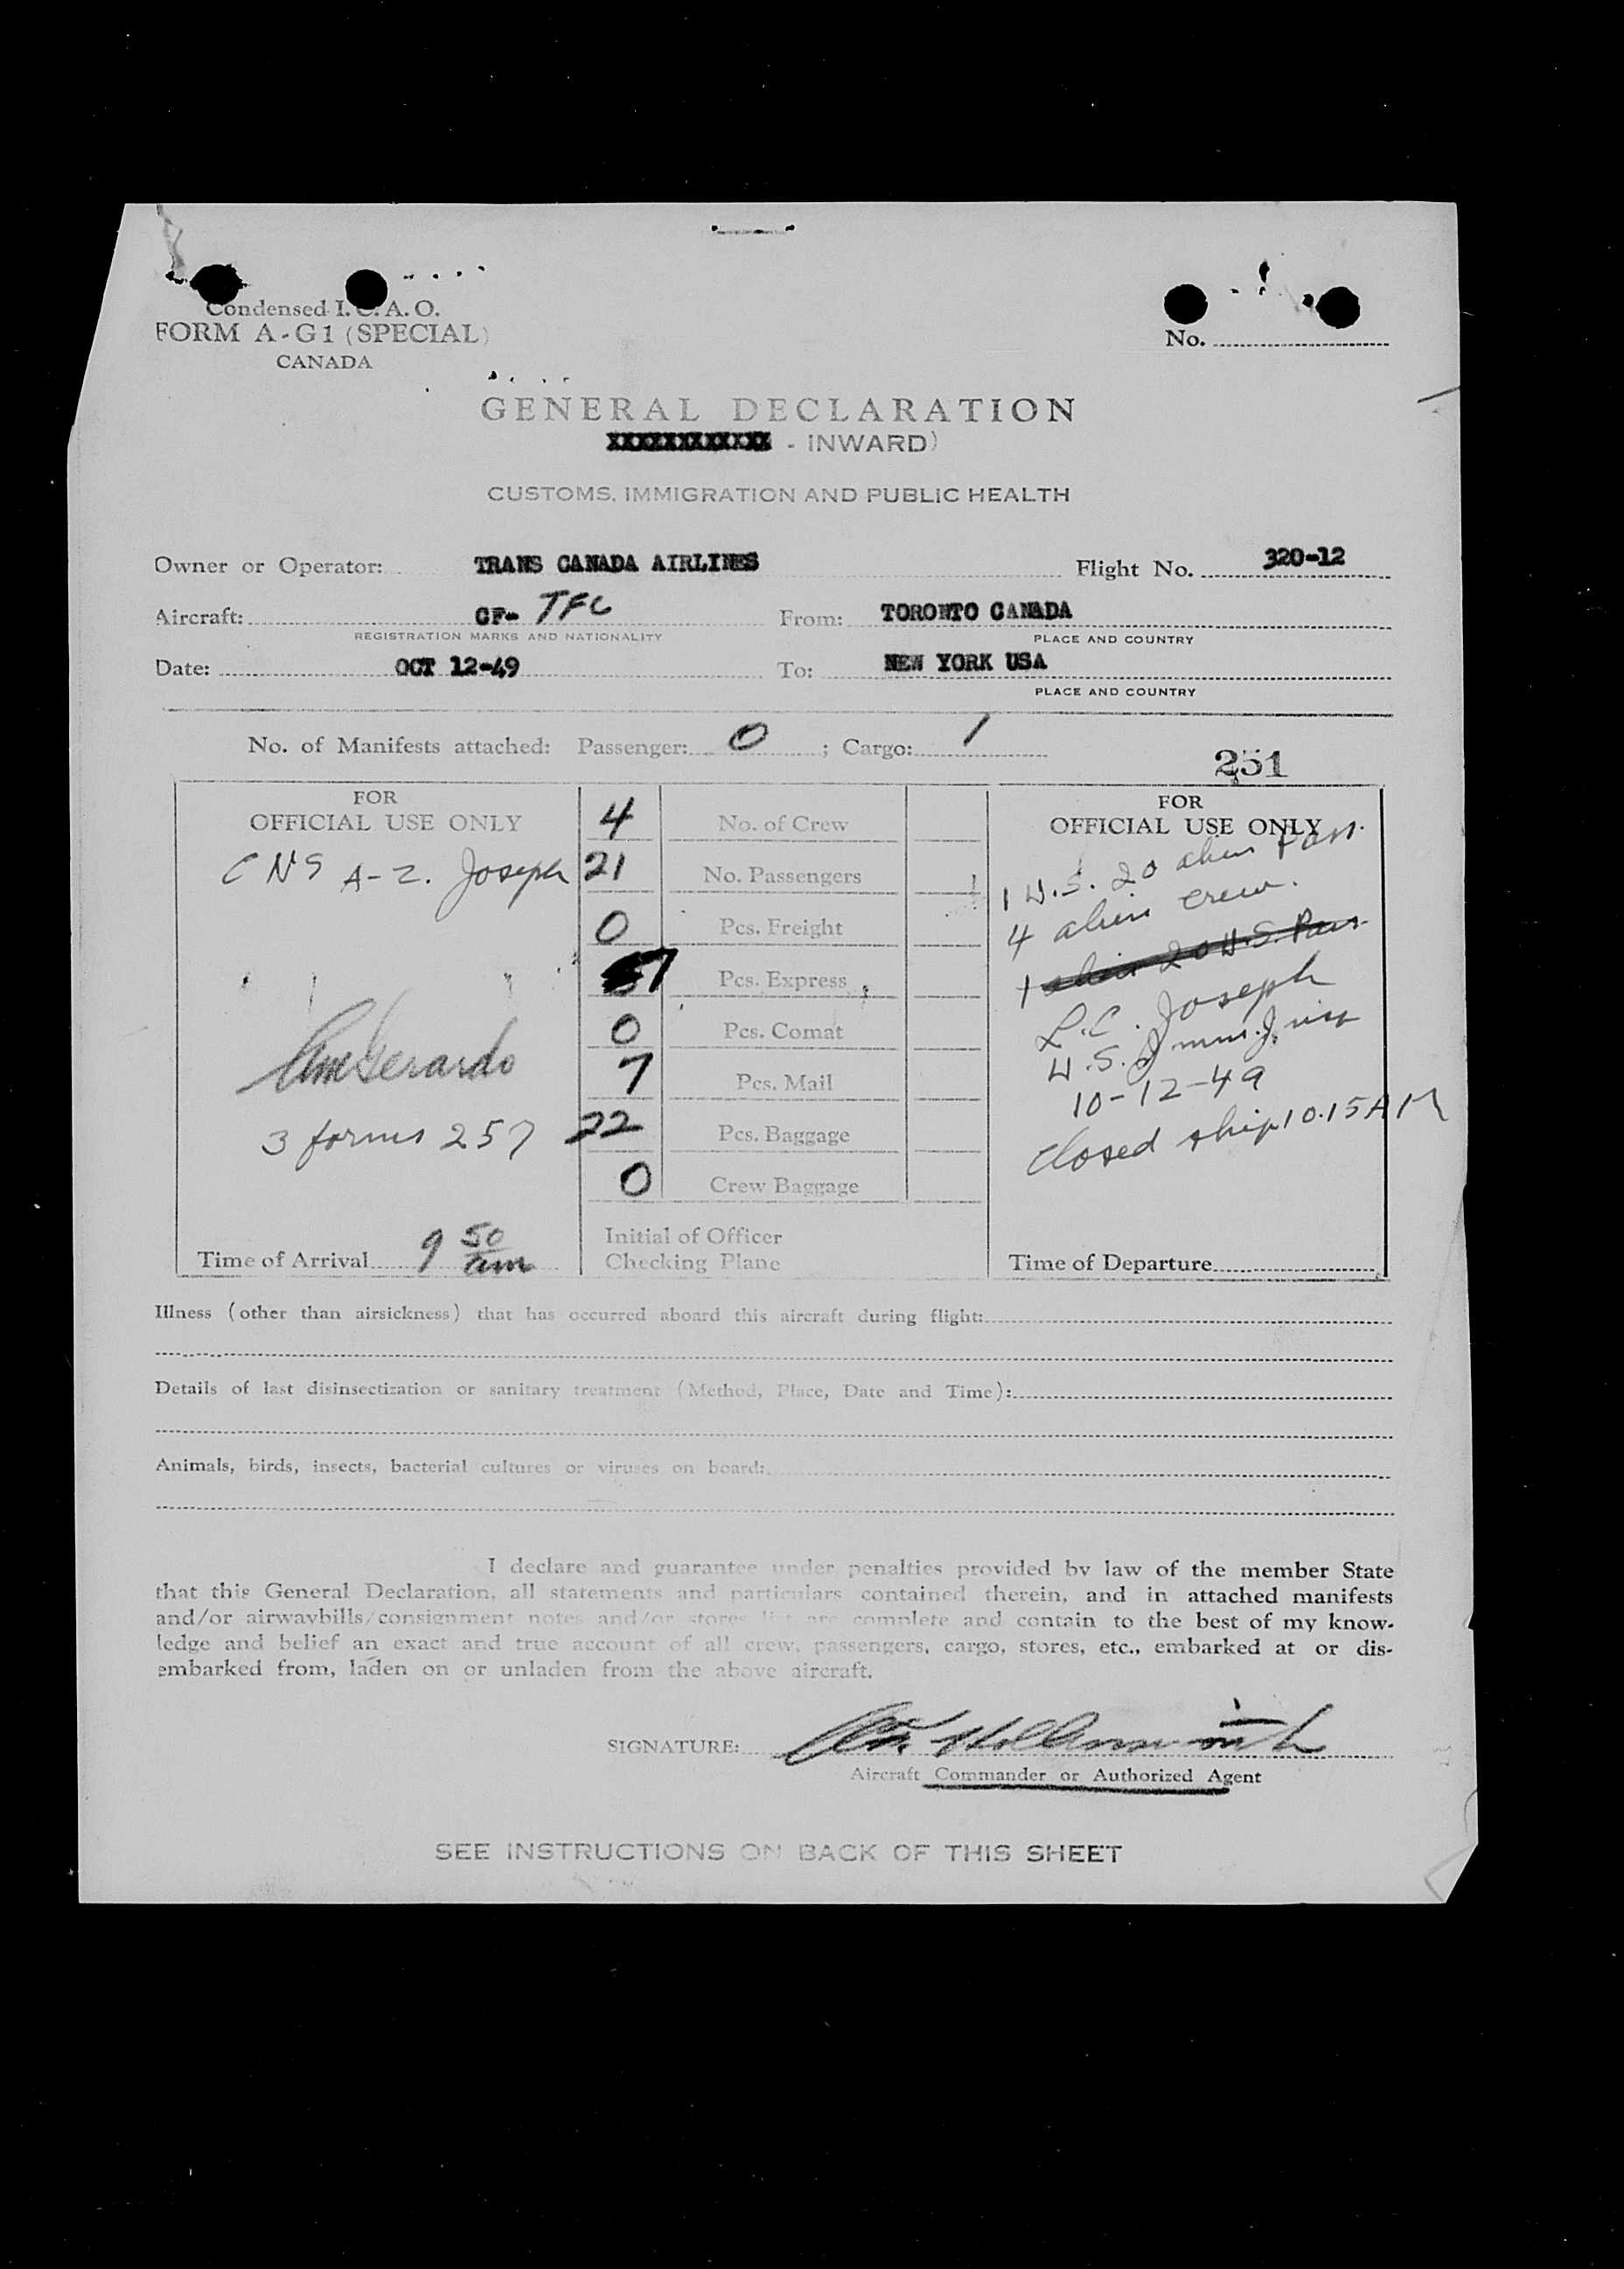 Condensed I. C. A. O.
FORM A-G1 (SPECIAL)
CANADA
No.
GENERAL DECLARATION
XXXXXXXXXXXX - INWARD)
CUSTOMS, IMMIGRATION AND PUBLIC HEALTH
Owner or Operator: TRANS CANADA AIRLINES Flight No. 320-12
Aircraft: CF- TFC From: TORONTO CANADA
REGISTRATION MARKS AND NATIONALITY PLACE AND COUNTRY
Date: OCT 12-49 To: NEW YORK USA
PLACE AND COUNTRY
No. of Manifests attached: Passenger: 0 ; Cargo: 1
251
FOR
OFFICIAL USE ONLY
CNS A-Z. Joseph
3 forms 257
Time of Arrival 9 50 am
4 No. of Crew
21 No. Passengers
0 Pcs. Freight
7 Pcs. Express
0 Pcs. Comat
7 Pcs. Mail
22 Pcs. Baggage
0 Crew Baggage
Initial of Officer
Checking Plane
FOR
OFFICIAL USE ONLY
1 U.S. 20 alien Pass.
4 alien crew.
1 alien 20 U.S. Pass.
L.C. Joseph
U.S. Imm. Insp
10-12-49
Closed ship 10.15 AM
Time of Departure
Illness (other than airsickness) that has occurred aboard this aircraft during flight:
Details of last disinsectization or sanitary treatment (Method, Place, Date and Time):
Animals, birds, insects, bacterial cultures or viruses on board:
I declare and guarantee under penalties provided by law of the member State
that this General Declaration, all statements and particulars contained therein, and in attached manifests
and/or airwaybills/consignment notes and/or stores list are complete and contain to the best of my know-
ledge and belief an exact and true account of all crew, passengers, cargo, stores, etc., embarked at or dis-
embarked from, laden on or unladen from the above aircraft.
SIGNATURE:
Aircraft Commander or Authorized Agent
SEE INSTRUCTIONS ON BACK OF THIS SHEET